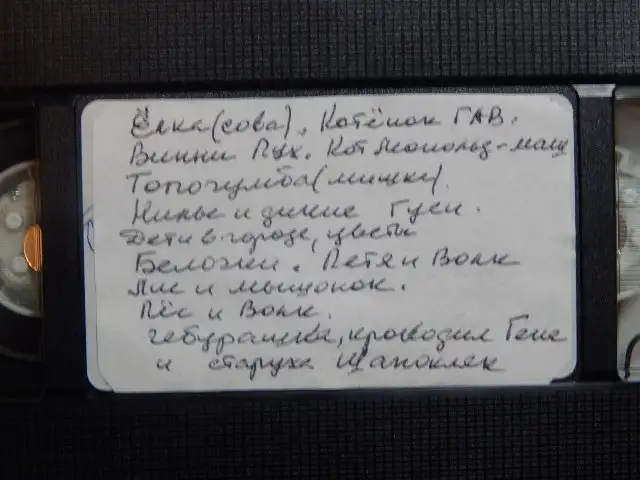 Ёлка (сова). Котёнок ГАВ.
Винни Пух. Кот Леопольд - маш
Топочумба (мишки).
Нильс и дикие Гуси.
Дети в городе, цветы
Беложки. Петя и Волк
Лис и мышонок.
Пёс и Волк.
Чебурашка, крокодил Гена
и старуха Шапокляк